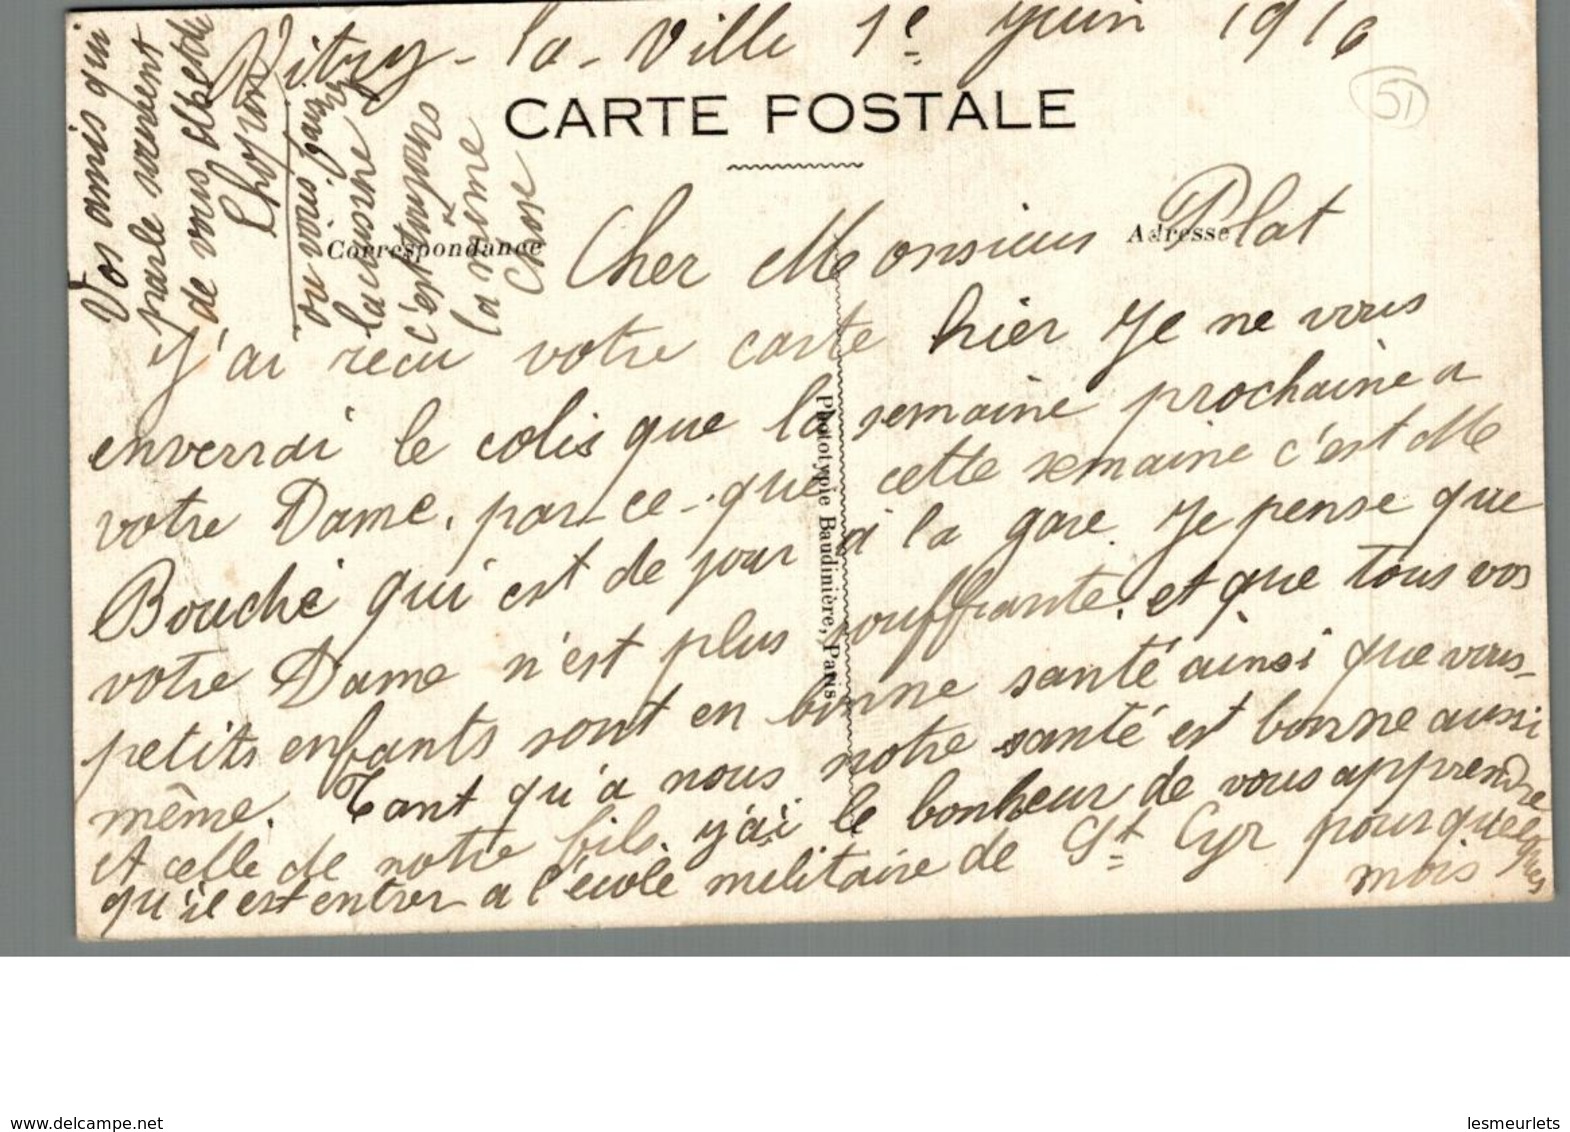 Vitry-la-Ville 1e Juin 1916
CARTE POSTALE
51
Correspondance
Adresse
Cher Monsieur Plat
J'ai recu votre carte hier Je ne vous
enverrai le colis que la semaine prochaine a
votre Dame, par-ce-que cette semaine c'est Me
Bouché qui est de jour à la gare. Je pense que
votre Dame n'est plus souffrante, et que tous vos
petits enfants sont en bonne santé ainsi que vous-
même. Tant qu'a nous notre santé est bonne aussi
et celle de notre fils. j'ai le bonheur de vous apprendre
qu'il est entrer a l'école militaire de St Cyr pour quelques
mois
Vos amis qui
parle souvent
de vous Albert
on vois
la marne
c'est
la marne
Phototypie Baudinière, Paris
www.delcampe.net
lesmeurlets